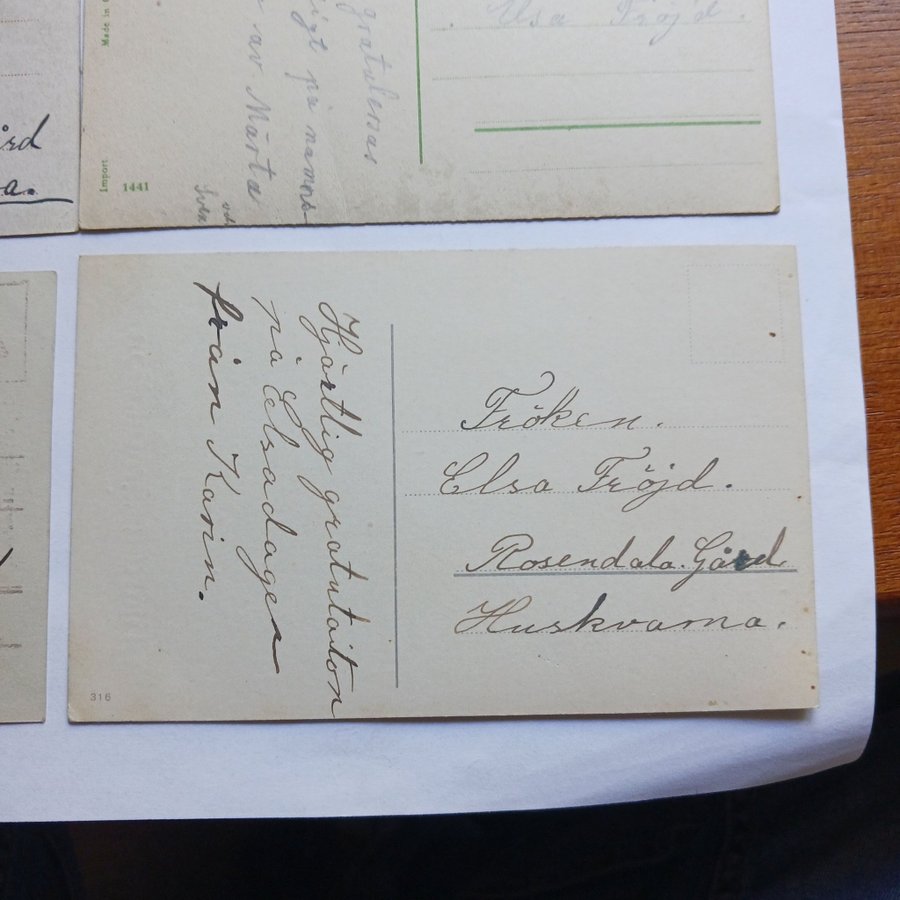 Made in
Import
1441
gratuleras
på namns
av Märta
Elsa Fröjd.
Hjärtlig gratulaiton
på Elsadagen
från Karin.
Fröken.
Elsa Fröjd.
Rosendala. Gård
Huskvarna.
316